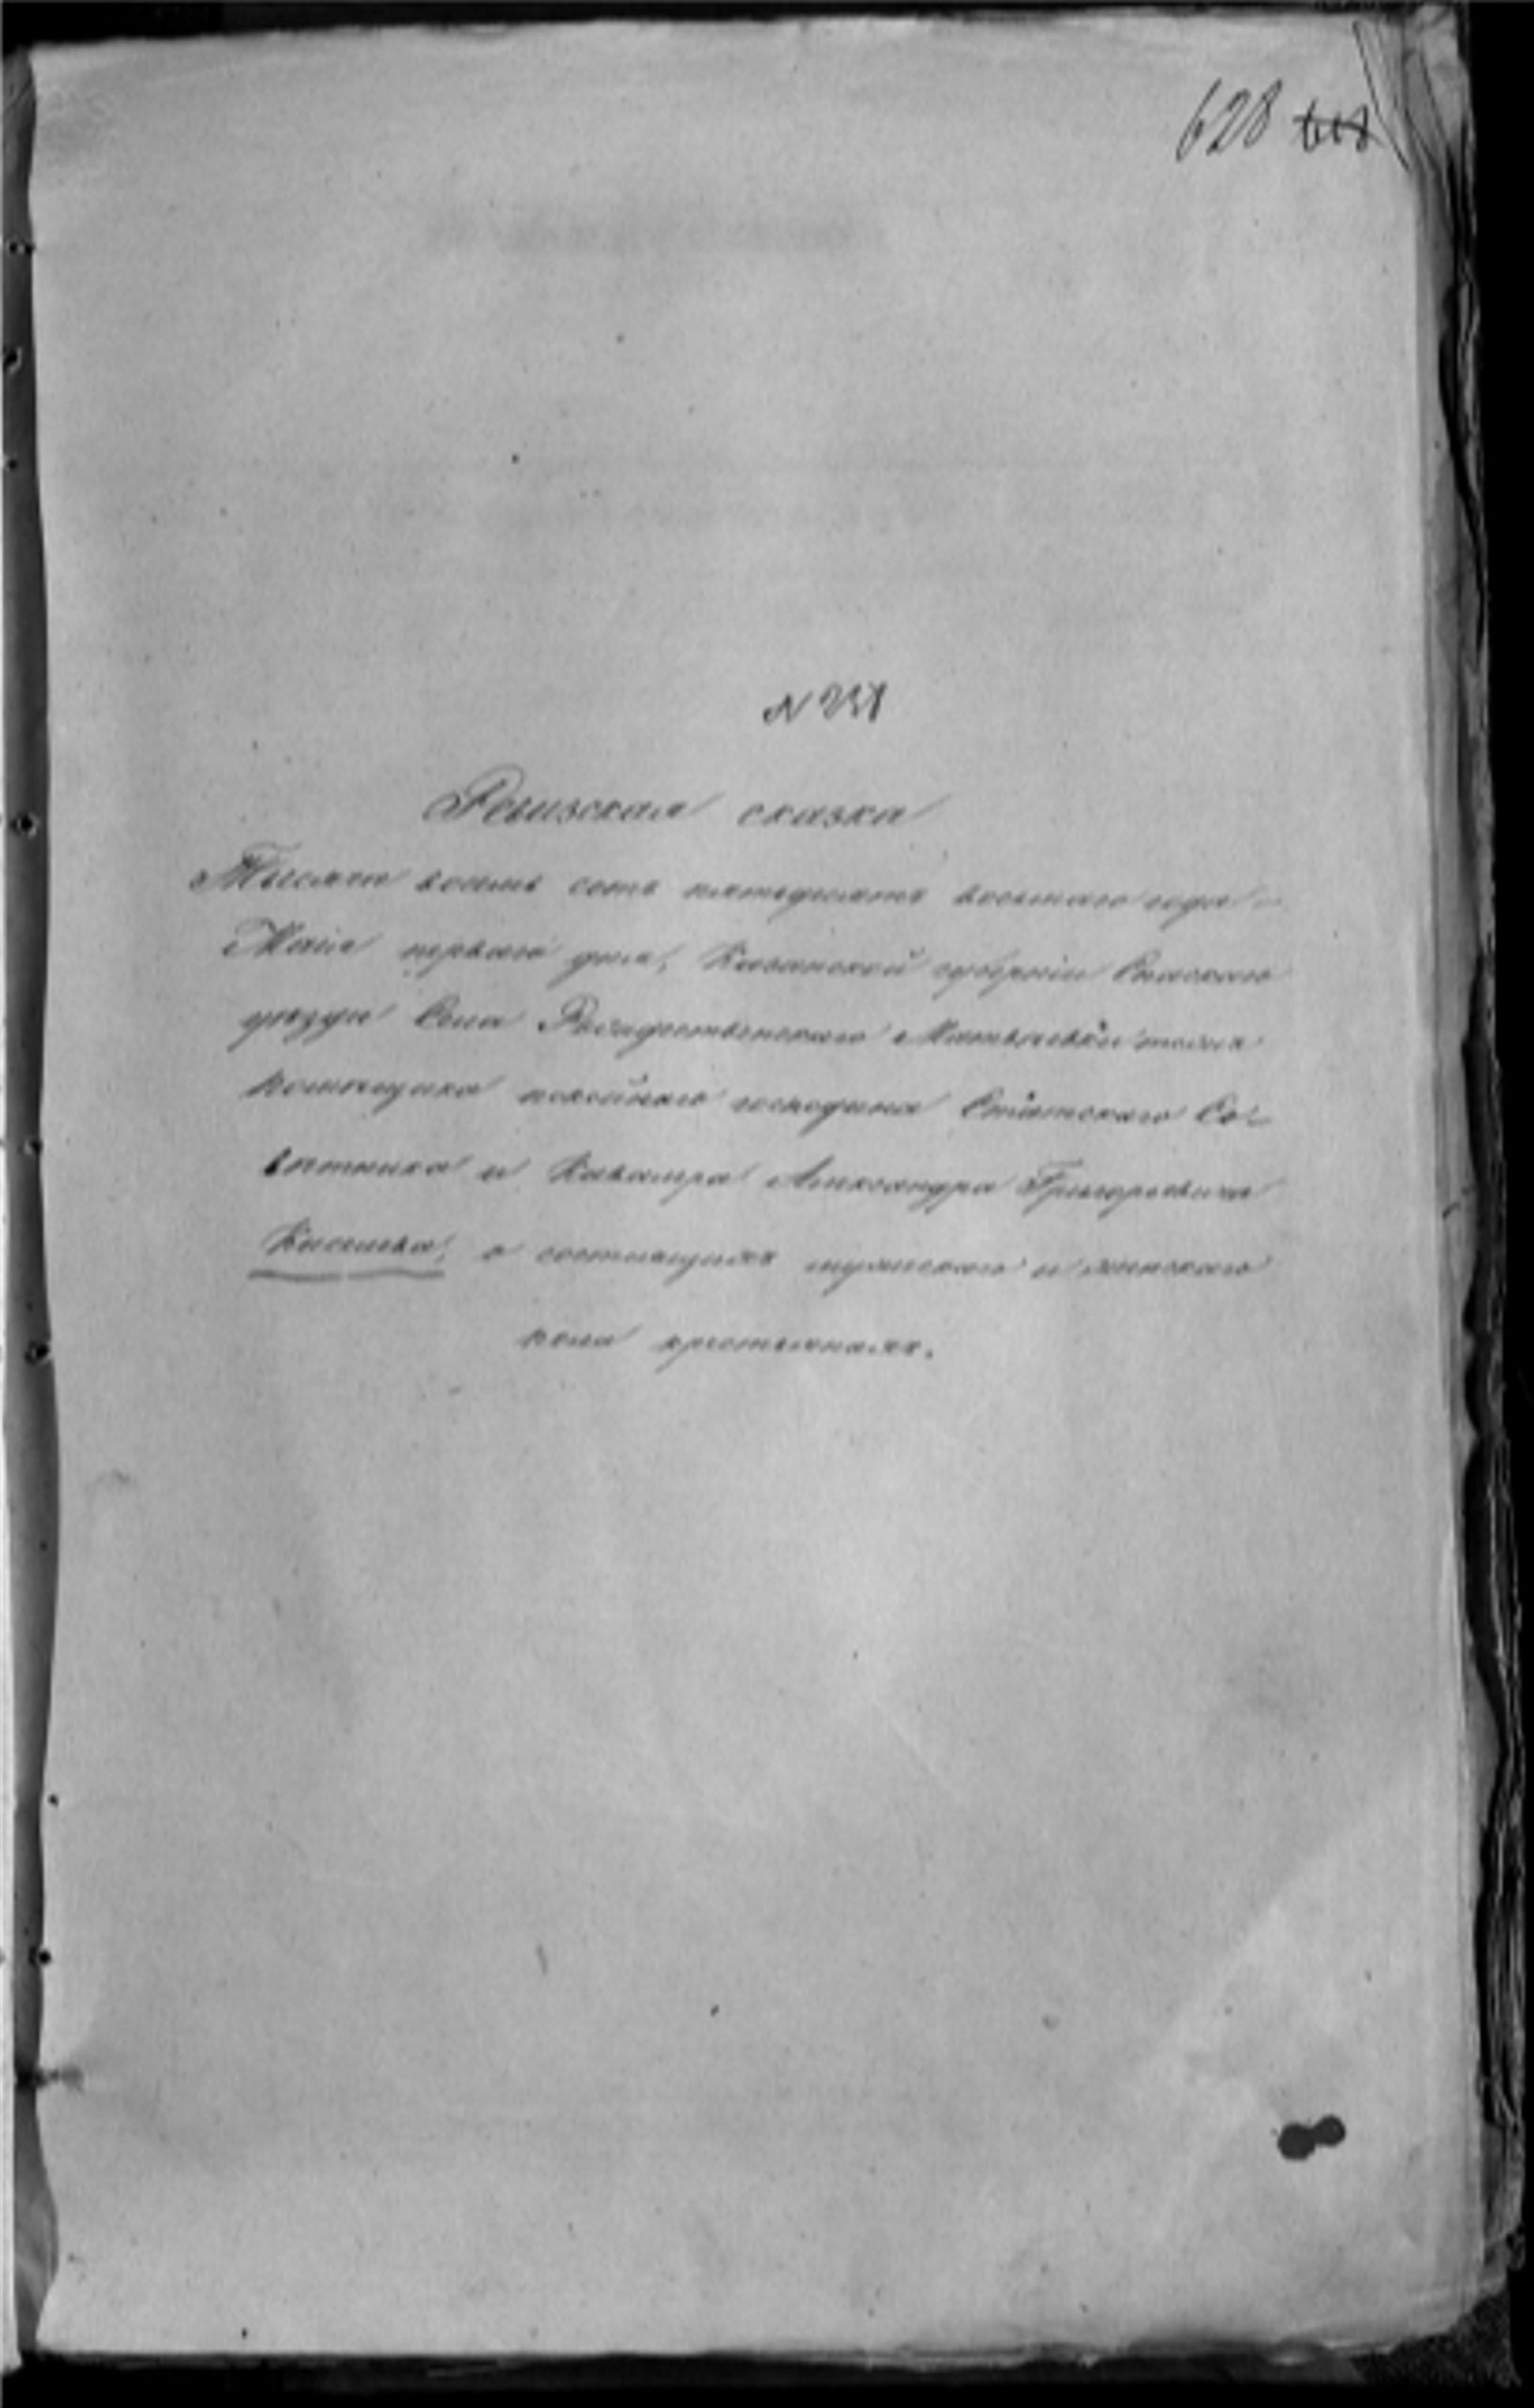 628
Ревизская сказка
Тысяча восемь сотъ пятьдесятъ восьмаго года
Маія перваго дня, Казанской губерніи Спаскаго
уезда Села Рождественскаго
помещика покойнаго господина Статскаго Со-
ветника и Кавалера Александра Григорьевича
Киселева, о состоящихъ мужескаго и женскаго
пола крестьянахъ.